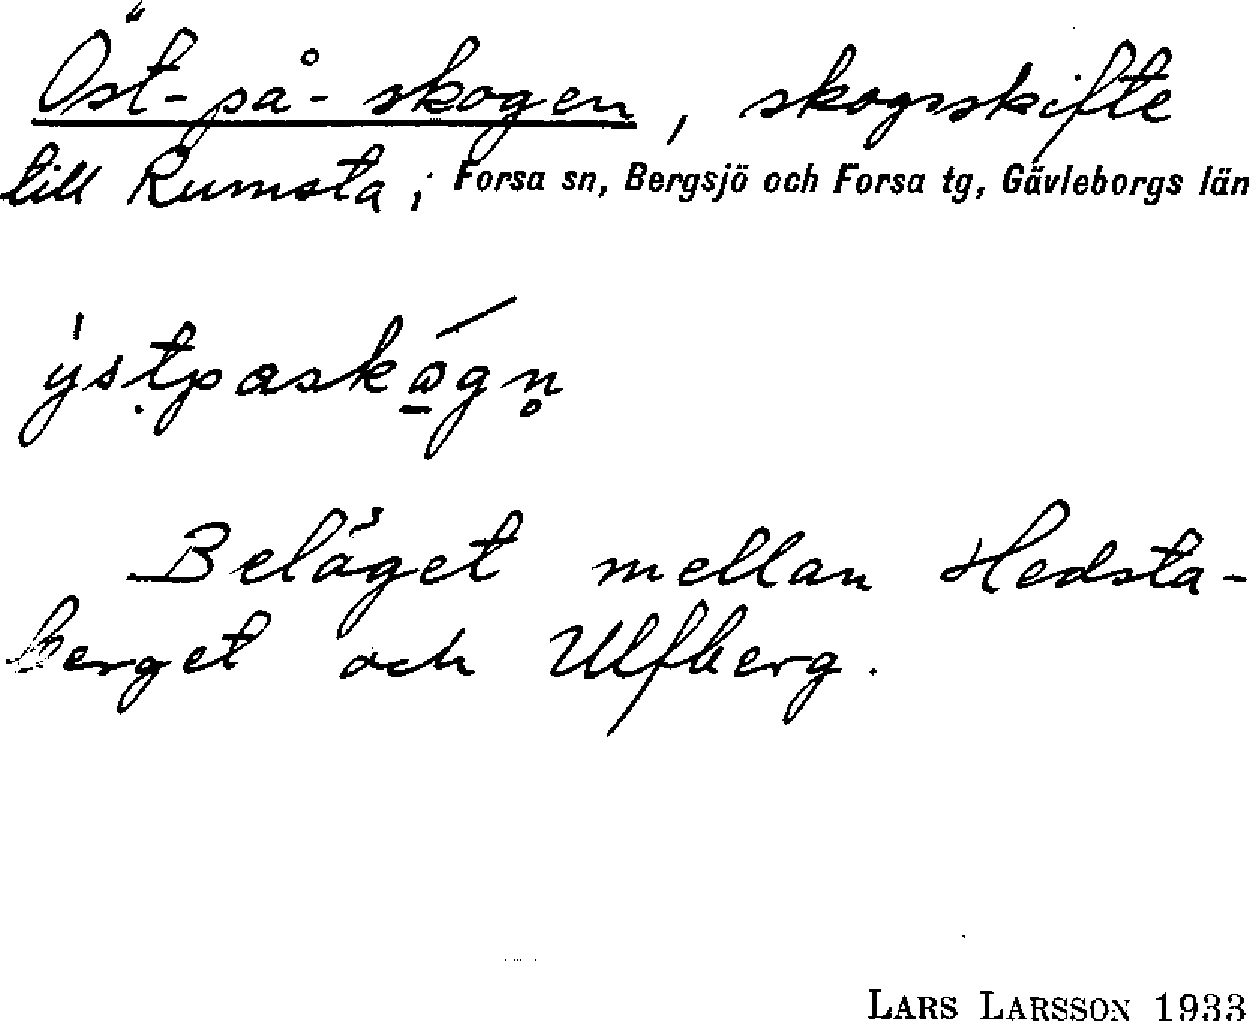 Öst-på-skogen, skogsskifte
till Rumsta; Forsa sn, Bergsjö och Forsa tg, Gävleborgs län
Beläget mellan Hedsta-
berget och Ulfberg.
LARS LARSSON 1933